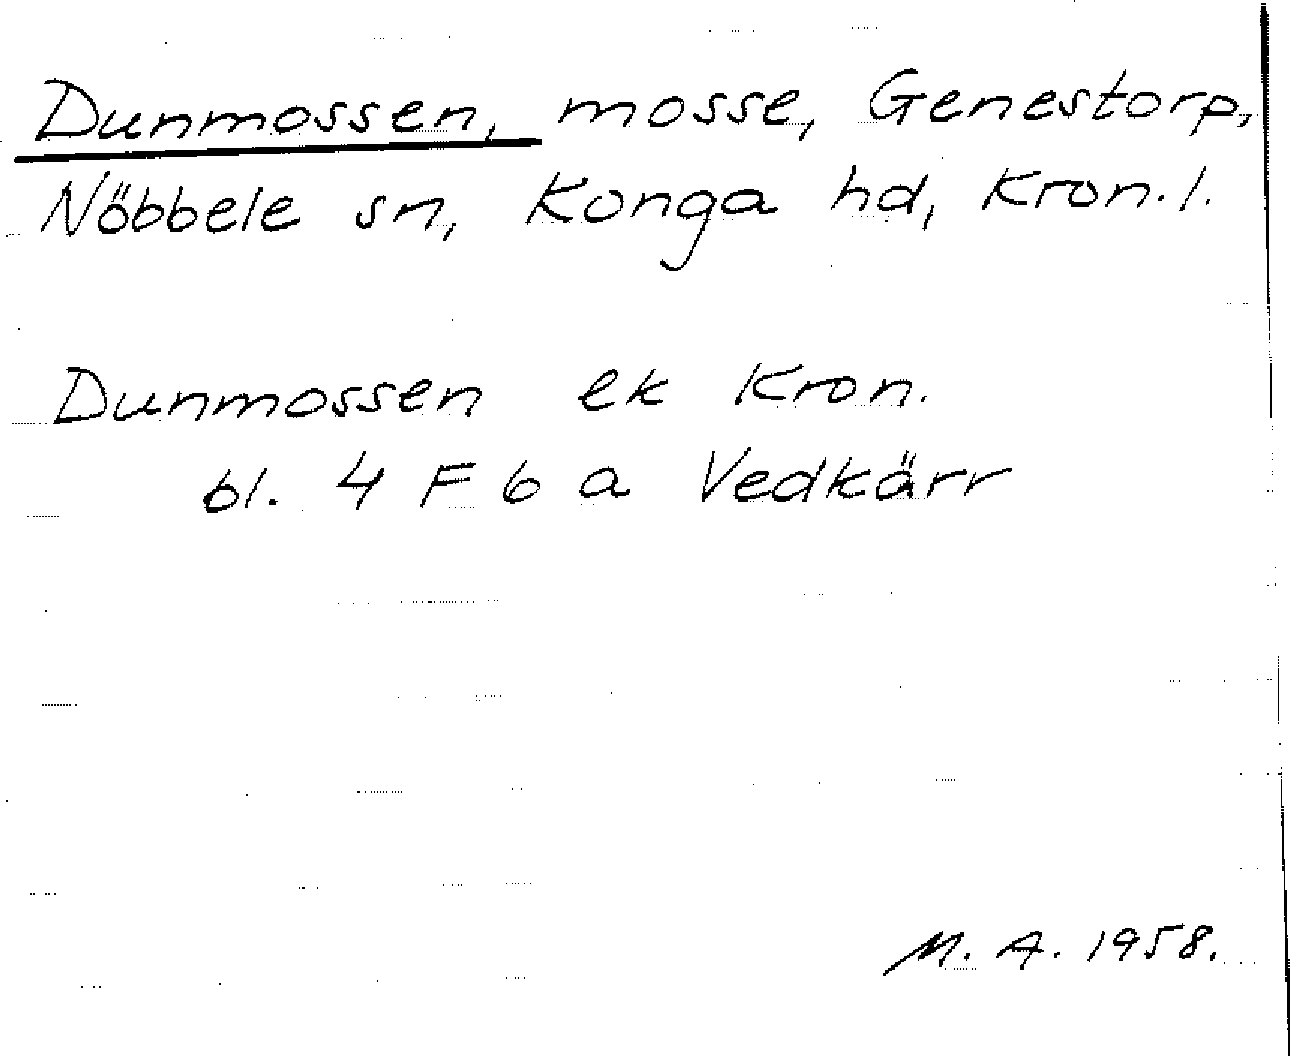 Dunmossen, mosse, Genestorp,
Nöbbele sn, Konga hd, Kron.l.
Dunmossen ek Kron.
bl. 4 F 6 a Vedkärr
M. A. 1958.